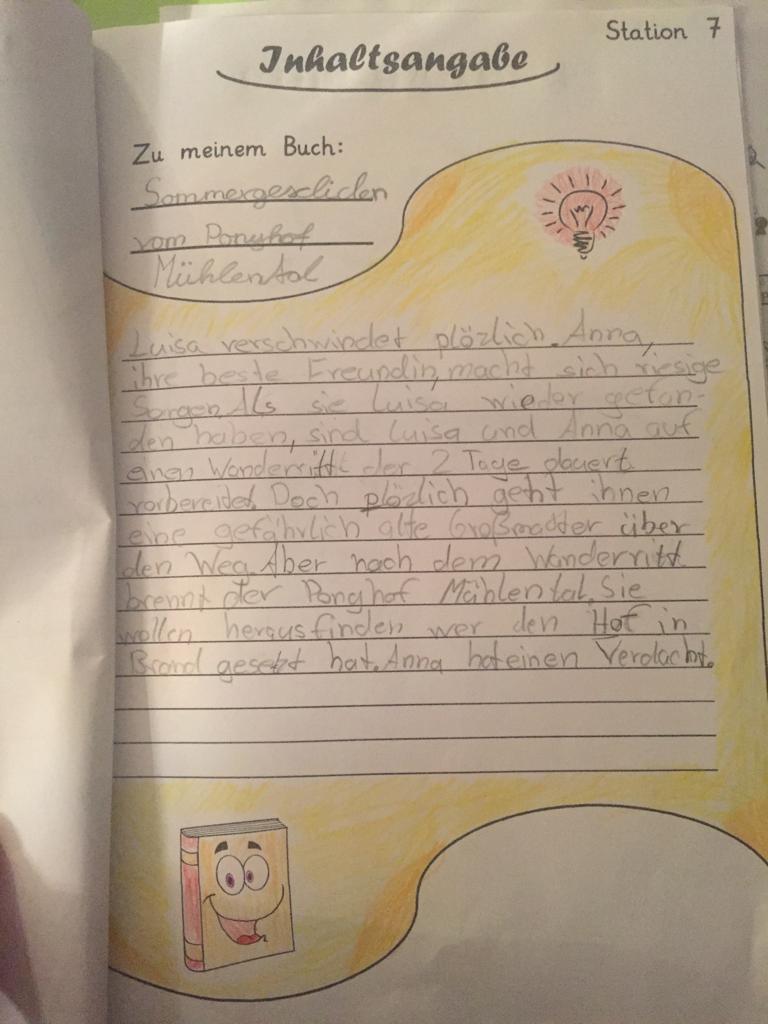 Station 7
Inhaltsangabe
Zu meinem Buch:
Sommergeschichten
vom Ponyhof
Mühlental
Luisa verschwindet plözlich. Anna,
ihre beste Freundin, macht sich riesige
Sorgen. Als sie Luisa wieder gefun-
den haben, sind Luisa und Anna auf
einen Wanderritt der 2 Tage dauert
vorbereitet. Doch plözlich geht ihnen
eine gefährlich alte Großmutter über
den Weg. Aber nach dem Wanderritt
brennt der Ponyhof Mühlental. Sie
wollen herausfinden wer den Hof in
Brand gesetzt hat. Anna hat einen Verdacht.